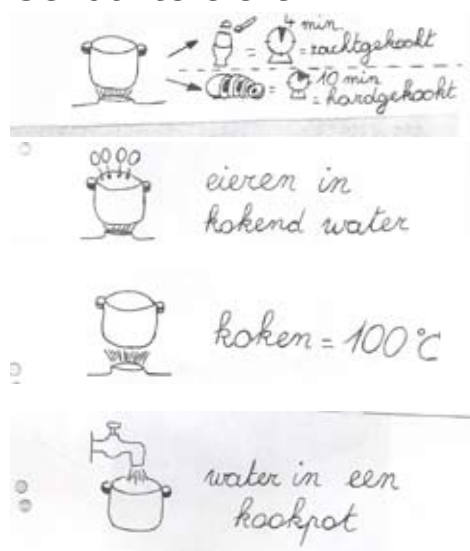 4 min
= zachtgekookt
10 min
= hardgekookt
eieren in
kokend water
koken = 100°C
water in een
kookpot